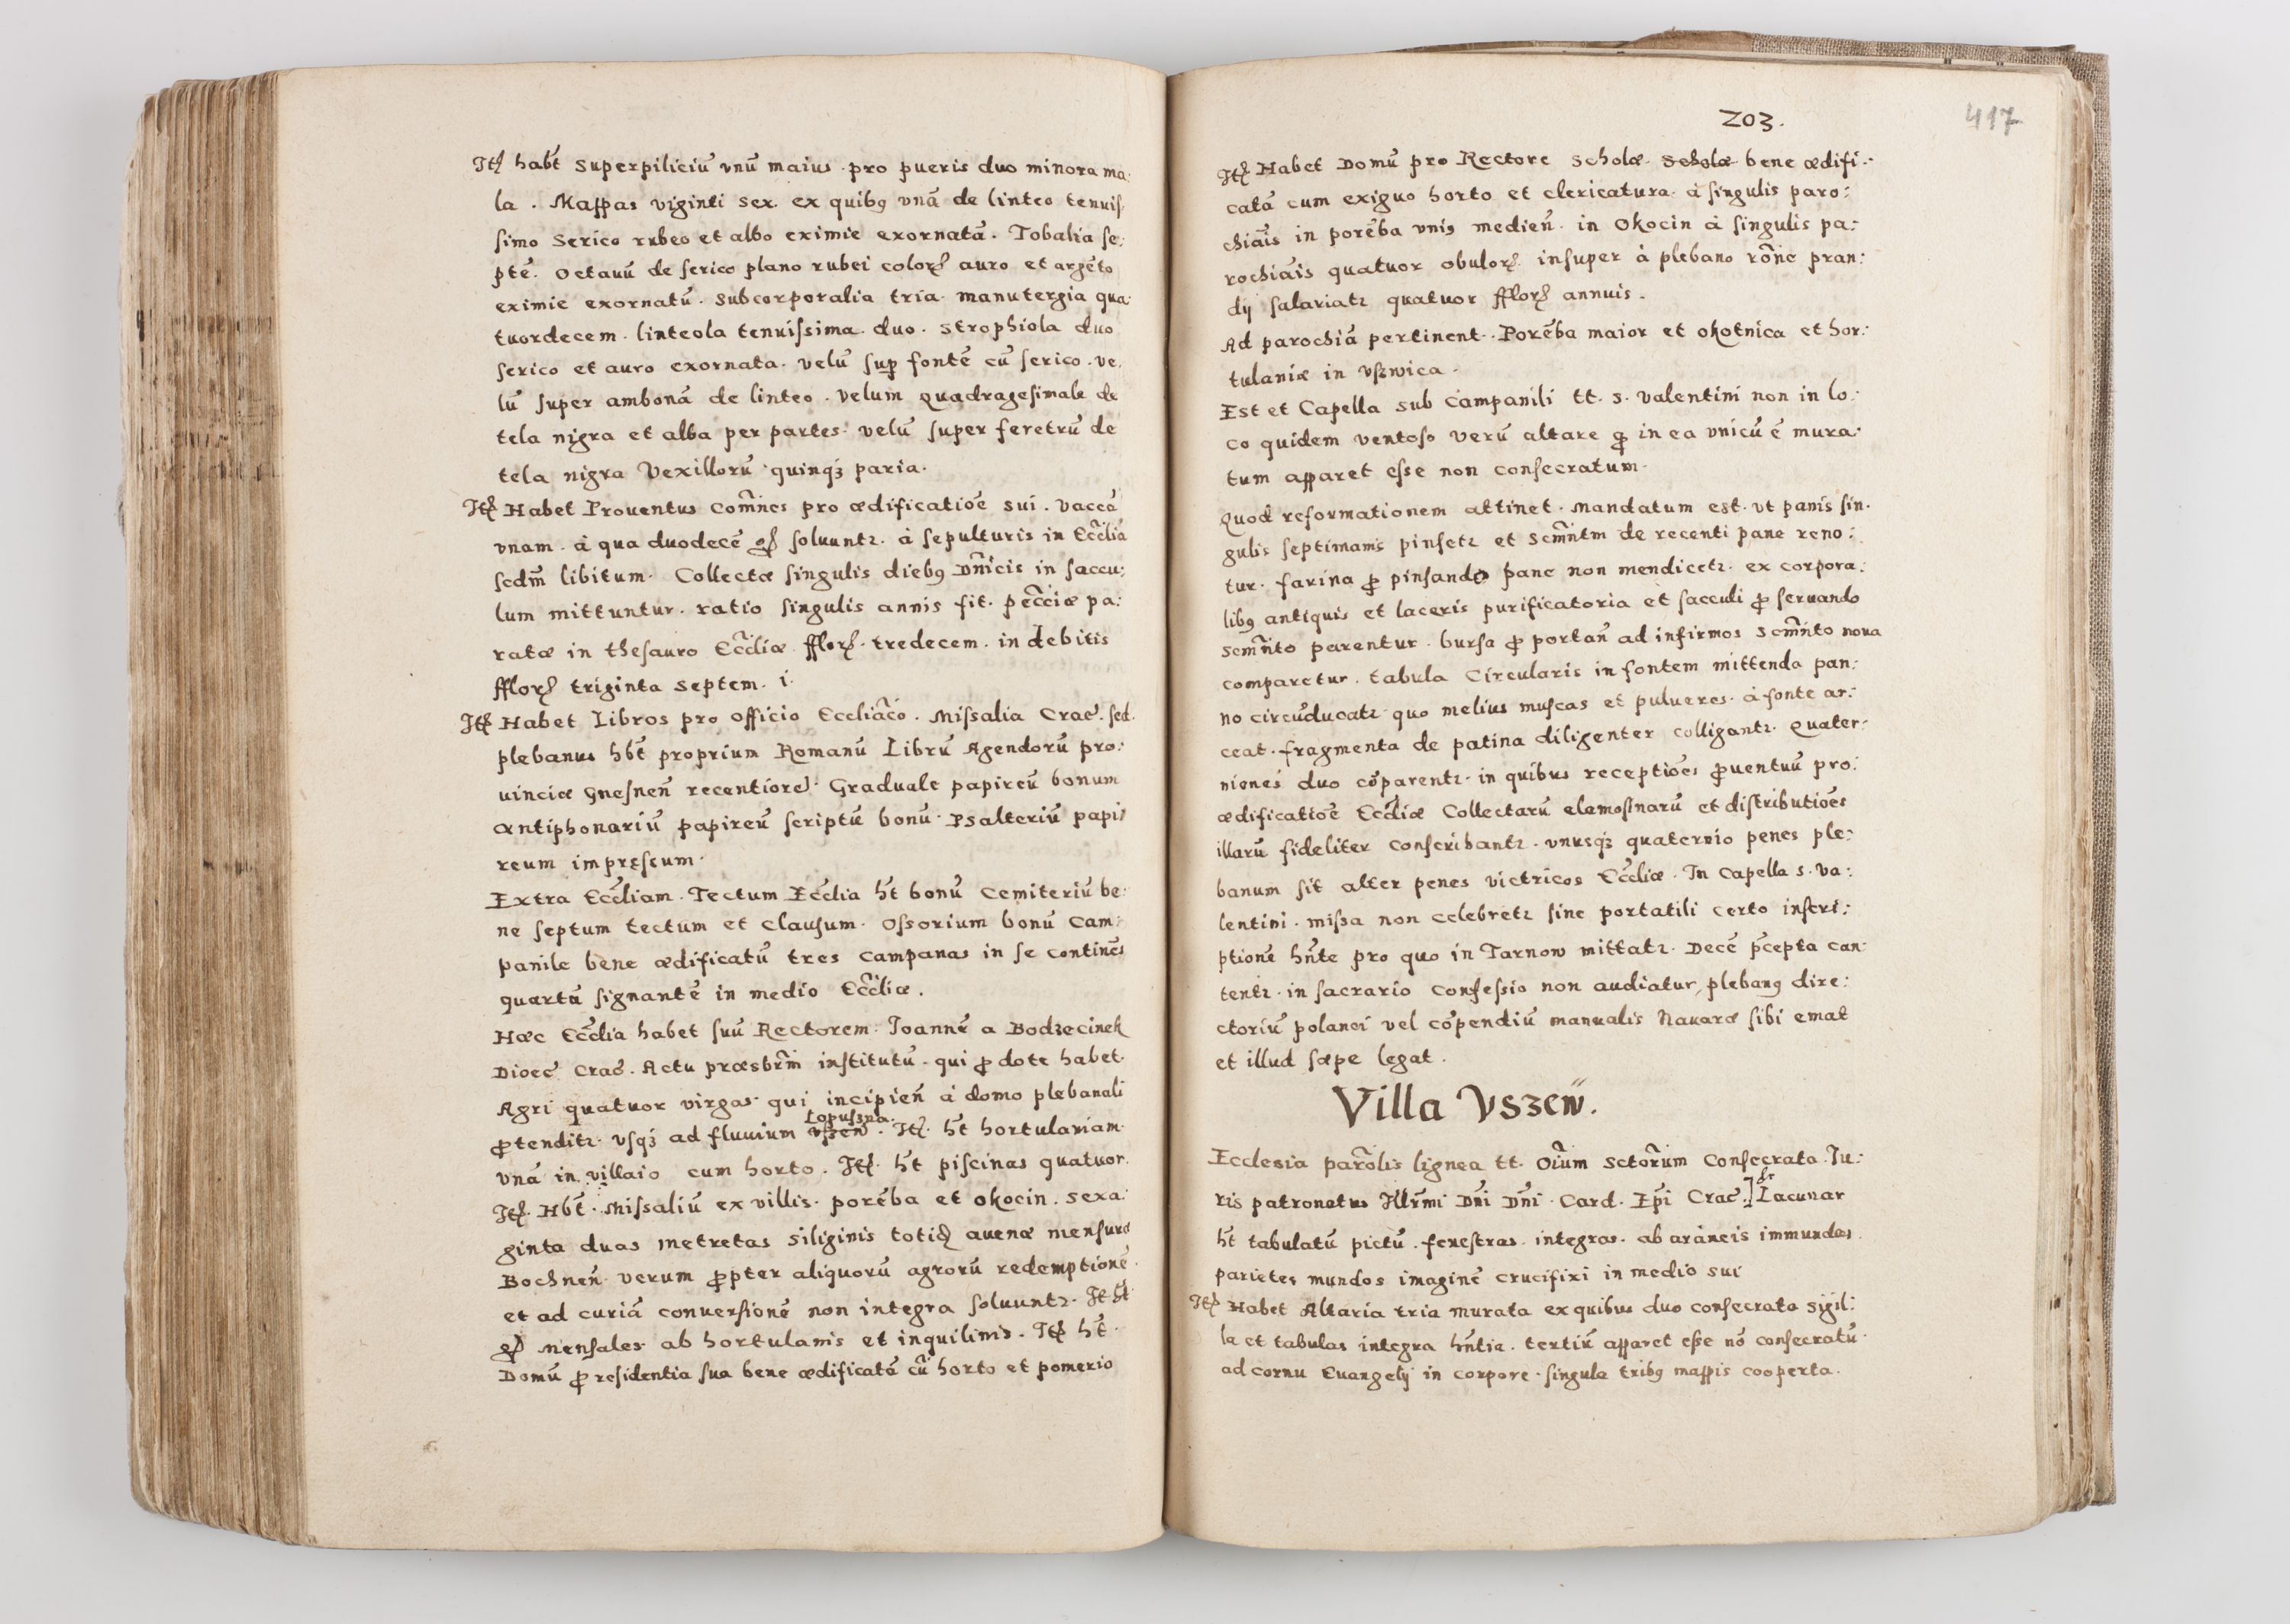 Itꝫ habt̃ superpiliciũ vnũ maius. pro pueris duo minora ma:
la. Mappas viginti sex. ex quibꝰ vnã de linteo tenuis
simo serico rubeo et albo eximie exornatã. Tobalia se:
ptẽ. octauũ de serico plano rubei colorꝫ auro et argẽto
eximie exornatũ. subcorporalia tria. manutergia qua:
tuordecem. linteola tenuissima. duo. strophiola duo
serico et auro exornata. velũ suꝑ fontẽ cũ serico. ve:
lũ super ambonã de linteo. velum quadragesimale de
tela nigra et alba per partes. velũ super feretrũ de
tela nigra Vexillorũ quinqꝫ paria.
Itꝫ Habet Prouentus com̃nes pro ædificatiõe sui. vaccã
vnam. à qua duodecẽ gꝭ soluuntꝛ. à sepulturis in Eccl̃ia
scdm̃ libitum. Collectæ singulis diebꝰ Dñicis in saccu:
lum mittuntur. ratio singulis annis fit. pecc̃iæ pa:
ratæ in thesauro Eccl̃iæ fflorꝫ. tredecem. in debitis
fflorꝫ triginta septem. i.
Itꝫ Habet Libros pro officio Eccliãco. Missalia Crac̃. sed.
plebanus hb̃t proprium Romanũ Librũ Agendorũ pro:
uinciæ Gnesneñ recentiorẽ. Graduale papireũ bonum
Antiphonariũ papireũ scriptũ bonũ. Psalteriũ papi
reum impressum.
Extra Eccl̃iam. Tectum Eccl̃ia ht̃ bonũ Cemiteriũ be:
ne septum tectum et clausum. Ossorium bonũ Cam:
panile bene ædificatũ tres campanas in se continẽs
quartã signantẽ in medio Eccl̃iæ.
Hæc Eccl̃ia habet suũ Rectorem. Joannẽ a Bodzecinek
Dioec̃ Crac̃. Actu præsbr̃m institutũ. qui ꝓ dote habet.
Agri quatuor virgas. qui incipieñ à domo plebanali
Lopuszna.
ꝓtenditꝛ. vsqꝫ ad fluuium vszeẅ. Itꝫ. ht̃ hortulaniam
vnã in villaio cum horto. Itꝫ. ht̃ piscinas quatuor.
Itꝫ. Hbt̃. Missaliũ ex villis. porẽba et okocin. sexa:
ginta duas metretas siliginis totiꝫ auenæ mensuræ
Bochneñ. verum ꝓpter aliquorũ agrorũ redemptionẽ.
et ad curiã conuersionẽ non integra soluuntꝛ. It ht̃
gꝭ mensales ab hortulanis et inquilinis. Itꝫ ht̃.
Domũ ꝓ residentia sua bene ædificatã cũ horto et pomerio
203.
417
Itꝫ Habet Domũ pro Rectore scholæ scholæ bene ædifi:
catã cum exiguo horto et clericatura. à singulis paro:
chiãis in porẽba vniꝰ medieñ. in Okocin à singulis pa:
rochiãis quatuor obulorꝫ. insuper à plebano rõne pran:
dij salariatꝛ quatuor fflorꝫ annuis.
Ad parochiã pertinent. Porẽba maior et okotnica et hor:
tulaniæ in vszwica.
Est et Capella sub Campanili tt. s. valentini non in lo:
co quidem ventoso verũ altare ꝙ in ea vnicũ ẽ mura:
tum apparet esse non consecratum.
Quod reformationem attinet. mandatum est. vt panis sin:
gulis septimanis pinsetꝛ et Scmñtm de recenti pane reno:
tur. farina ꝓ pinsando pane non mendicetꝛ. ex corpora:
libꝰ antiquis et laceris purificatoria et sacculi ꝓ seruando
Scmñto parentur. bursa ꝓ portañ ad infirmos Scmñto noua
comparetur. tabula Circularis in fontem mittenda pan:
no circũducatꝛ quo melius muscas et pulueres. à fonte ar:
ceat. fragmenta de patina diligenter colligantꝛ. Quater:
niones duo cõparentꝛ. in quibus receptiões ꝓuentuũ pro:
ædificatiõe Eccl̃iæ Collectarũ elemosinarũ et distributiões
illarũ fideliter conscribantꝛ. vnusqꝫ quaternio penes ple:
banum sit alter penes victricos Eccl̃iæ. In Capella s. va:
lentini. missa non celebretꝛ sine portatili certo inscri:
ptionẽ hñte pro quo in Tarnow mittatꝛ. Decẽ p̃cepta can:
tentꝛ. in sacrario Confessio non audiatur, plebanꝰ dire:
ctoriũ polanci vel cõpendiũ manualis Nauaræ sibi emat
et illud sæpe legat.
Villa Vszeẅ.
Ecclesia parõlis lignea tt. Oĩum Sctõrum Consecrata. Ju:
ris patronatus Illr̃mi Dñi Dñi. Card. Ep̃i Crac̃.] Lacunar
ht̃ tabulatũ pictũ. fenestras integras. ab aràneis immundas
parietes mundos imaginẽ crucifixi in medio sui
Itꝫ Habet Altaria tria murata ex quibus duo consecrata sigil:
la et tabulas integra hñtia. tertiũ apparet esse nõ consecratũ.
ad cornu Euangelij in corpore. singula tribꝰ mappis cooperta.